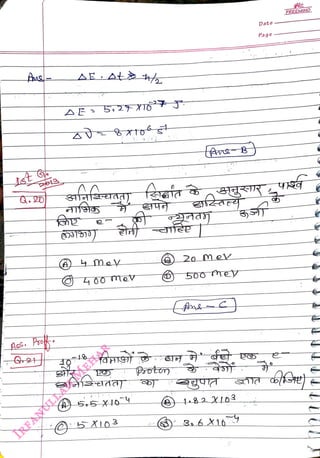 Date
Page
Ans - ΔE . Δt ≥ ħ/2
ΔE = 5.27 × 10⁻²⁷ J
Δν = 8 × 10⁶ s⁻¹
Ans - B
1st G. 2013
Q.20 अनिश्चितता सिद्धांत के अनुसार, पार्श्व
नाभिक में अपने अस्तित्व के
लिए e- की न्यूनतम ऊर्जा
लगभग होनी चाहिए।
Ⓐ 4 MeV Ⓑ 20 MeV
Ⓒ 400 MeV Ⓓ 500 MeV
Ans - C
Ass. Prof.
Q.21 10⁻¹⁸ विमाओं के बाम में बंधे एक e-
और एक Proton के वेगों में
अनिश्चितता का अनुपात ज्ञात कीजिए।
Ⓐ 5.5 × 10⁻⁴ Ⓑ 1.82 × 10³
Ⓒ 5 × 10³ Ⓓ 3.6 × 10⁻⁴
IRFANULLAH MEHAR